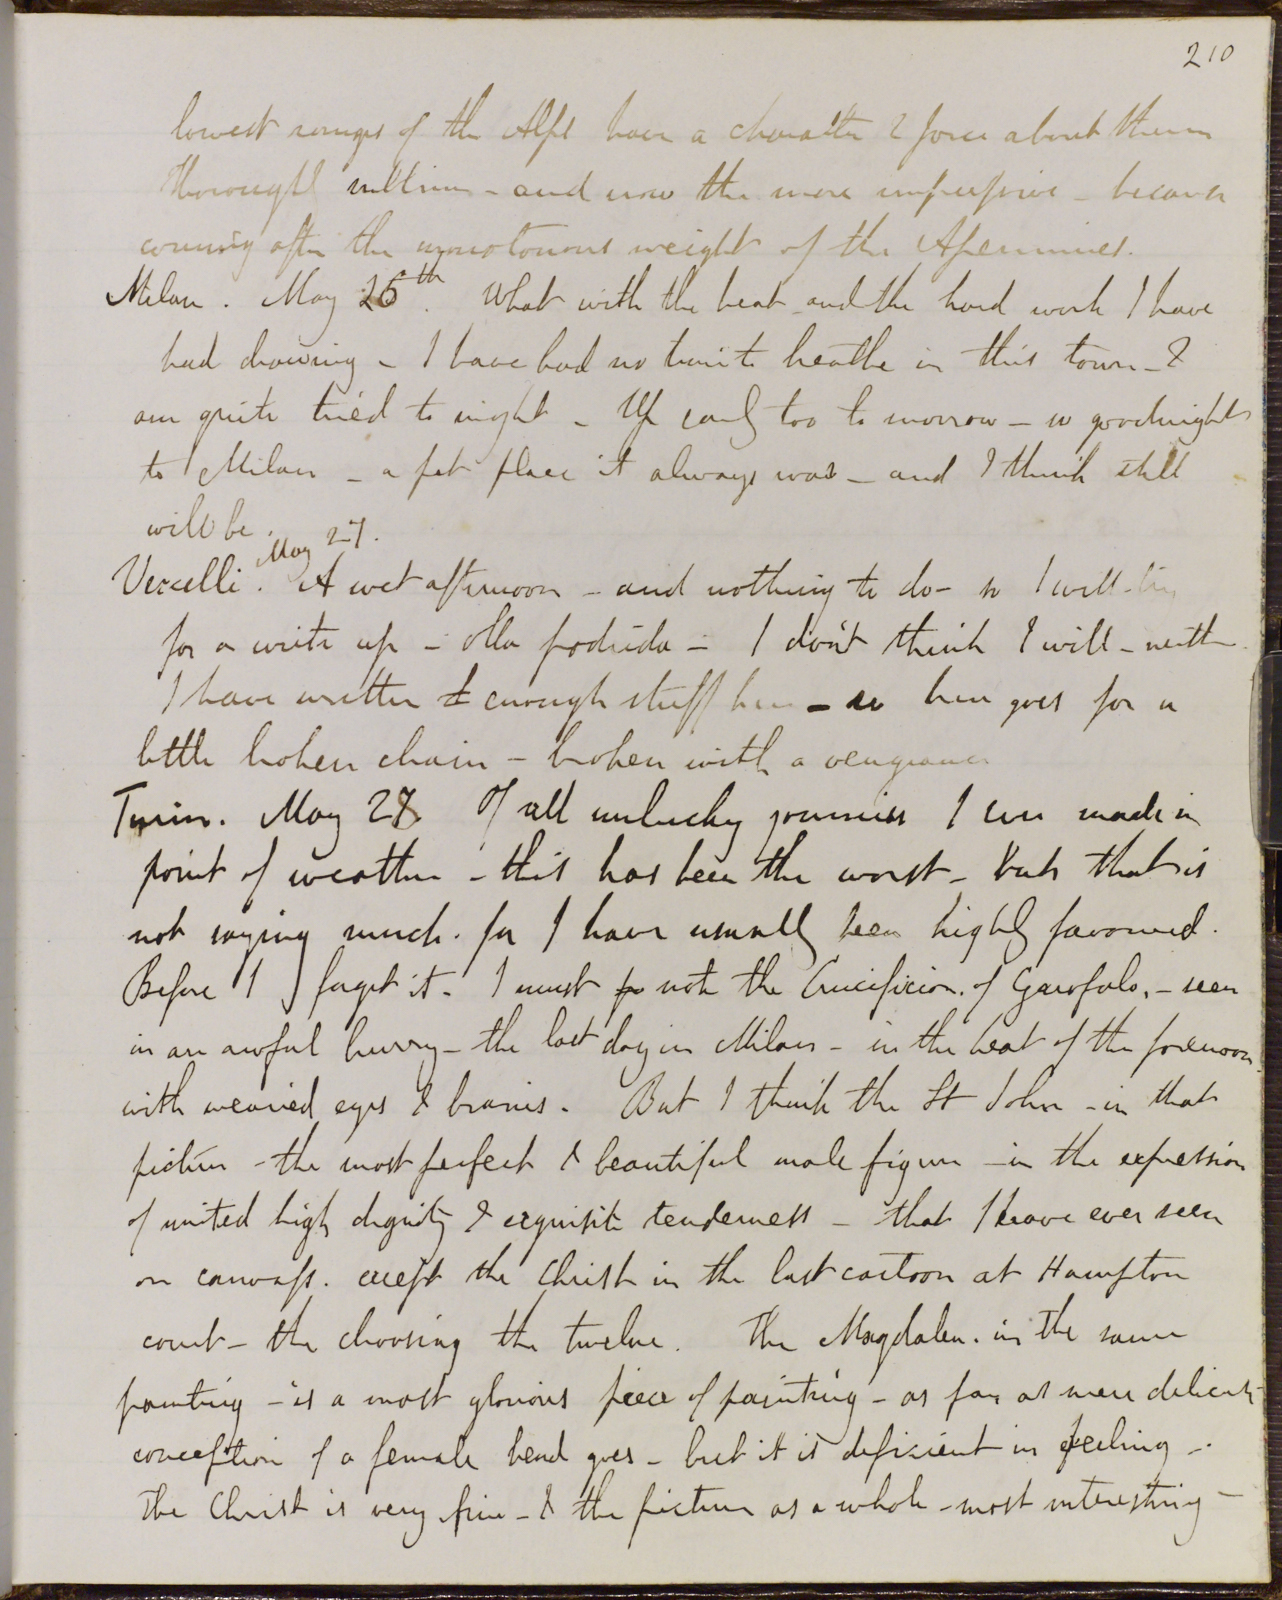 210
lowest ranges of the Alps have a character & force about them
thoroughly sublime - and now the more impressive - because
coming after the monotonous weight of the Apennines.
Milan. May 26th. What with the heat and the hard work I have
had drawing - I have had no time to breathe in this town - I
am quite tired to night - Up early too to morrow - so goodnight
to Milan - a pet place it always was - and I think still
will be.
May 27.
Vercelli. A wet afternoon - and nothing to do - so I will try
for a write up - olla podrida - I don't think I will - neither
I have written enough stuff here - so here goes for a
little broken chain - broken with a vengeance
Turin. May 28 Of all unlucky journies I ever made in
point of weather - this has been the worst - but that is
not saying much. for I have usually been highly favoured.
Before I forget it - I must note the Crucifixion. of Garofalo. - seen
in an awful hurry - the last day in Milan - in the heat of the forenoon
with wearied eyes & brains. But I think the St John - in that
picture - the most perfect & beautiful male figure - in the expression
of united high dignity & exquisite tenderness - that I have ever seen
on canvass. except the Christ in the last cartoon at Hampton
court - the choosing the twelve. The Magdalen. in the same
painting - is a most glorious piece of painting - as far as mere delicate
conception of a female head goes - but it is deficient in feeling -
The Christ is very fine - & the picture as a whole - most interesting -